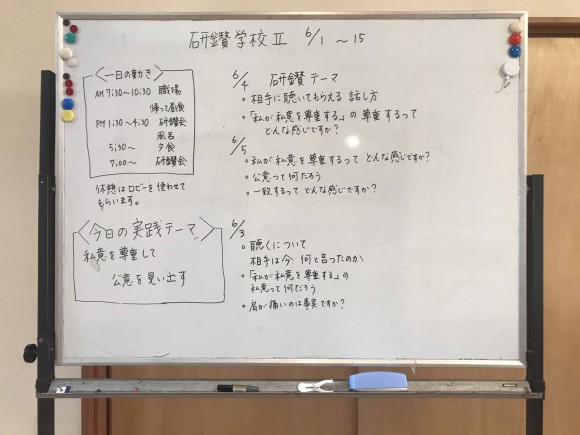 研鑽学校Ⅱ 6/1～15
〈一日の動き〉
AM 7:30～10:30 職場
帰って昼食
PM 1:30～4:30 研鑽会
風呂
5:30～ 夕食
7:00～ 研鑽会
休憩はロビーを使わせて
もらいます。
〈今日の実践テーマ〉
私意を尊重して
公意を見い出す
6/4 研鑽テーマ
。相手に聴いてもらえる話し方
。「私が私意を尊重する」の尊重するって
どんな感じですか?
6/5
。私が私意を尊重するってどんな感じですか?
。公意って何だろう
。一致するってどんな感じですか?
6/3
。聴くについて
相手は今何と言ったのか
。「私が私意を尊重する」の
私意って何だろう
。肩が痛いのは事実ですか?